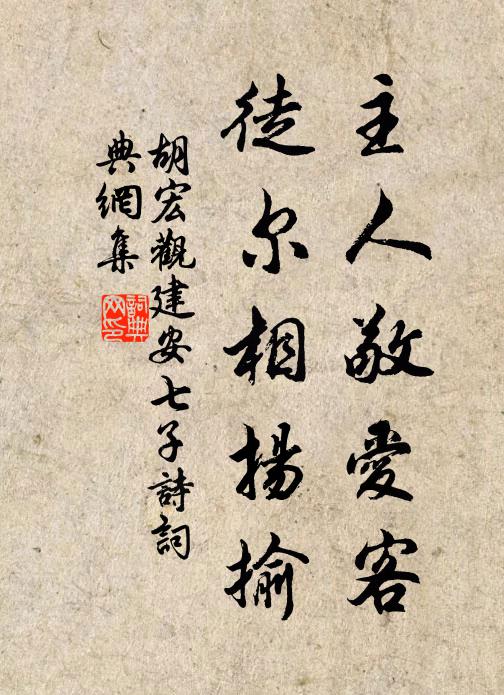 主人敬愛客
徒尔相揚揄
胡宏觀建安七子詩詞
典網集
詞典
网印